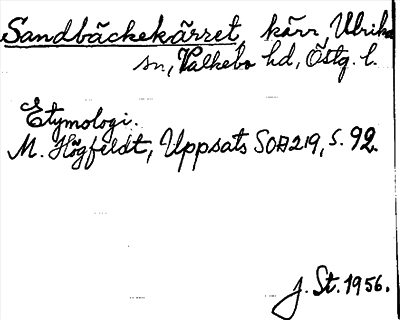 Sandbäckekärret, kärr, Ulrika
sn, Valkebo hd, Östg. l.
Etymologi.
M. Högfeldt, Uppsats SOA219, s. 92.
J. St. 1956.